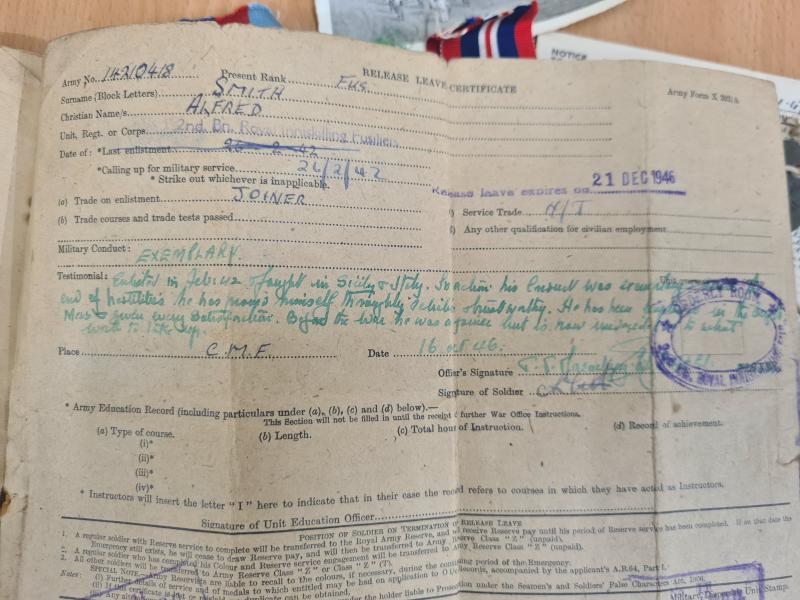 NOTICE
RELEASE LEAVE CERTIFICATE
Army Form X 202/A
Army No. 14210418 Present Rank Fus.
Surname (Block Letters) SMITH
Christian Name/s ALFRED
Unit, Regt. or Corps 2nd. Bn. Royal Inniskilling Fusiliers
Date of: *Last enlistment 26 - 2 - 42
*Calling up for military service 26/2/42
* Strike out whichever is inapplicable.
Release leave expires on 21 DEC 1946
(a) Trade on enlistment JOINER
Service Trade N/T
(b) Trade courses and trade tests passed
Any other qualification for civilian employment
Military Conduct: EXEMPLARY.
Testimonial: Enlisted in Feb 42 & fought in Sicily & Italy. In action his conduct was exemplary
end of hostilities he has proved himself thoroughly reliable & trustworthy. He has been in the
Mess & given every satisfaction. Before the war he was a joiner but is now undecided to what
work to take up.
ORDERLY ROOM
Place C.M.F. Date 16 Oct 46.
Officer's Signature
Signature of Soldier
* Army Education Record (including particulars under (a), (b), (c) and (d) below).—
This Section will not be filled in until the receipt of further War Office Instructions.
(a) Type of course. (b) Length. (c) Total hour of Instruction. (d) Record of achievement.
(i)*
(ii)*
(iii)*
(iv)*
* Instructors will insert the letter "I" here to indicate that in their case the record refers to courses in which they have acted as Instructors.
Signature of Unit Education Officer
POSITION OF SOLDIER ON TERMINATION OF RELEASE LEAVE
1. A regular soldier with Reserve service to complete will be transferred to the Royal Army Reserve, and will receive Reserve pay until his period of Reserve service has been completed. If on that date the
Emergency still exists, he will cease to draw Reserve pay, and will then be transferred to Army Reserve Class "Z" (unpaid).
2. A regular soldier who has completed his Colour and Reserve service engagement will be transferred to Army Reserve Class "Z" (unpaid).
3. All other soldiers will be transferred to Army Reserve Class "Z" or Class "Z" (T).
SPECIAL NOTE.—Army Reservists are liable to recall to the colours, if necessary, during the continuing period of the Emergency.
Notes: (i) Further details of service and medals to which entitled may be had on application to O i/c Records, accompanied by the applicant's A.B.64, Part I.
Military, Unit Stamp.